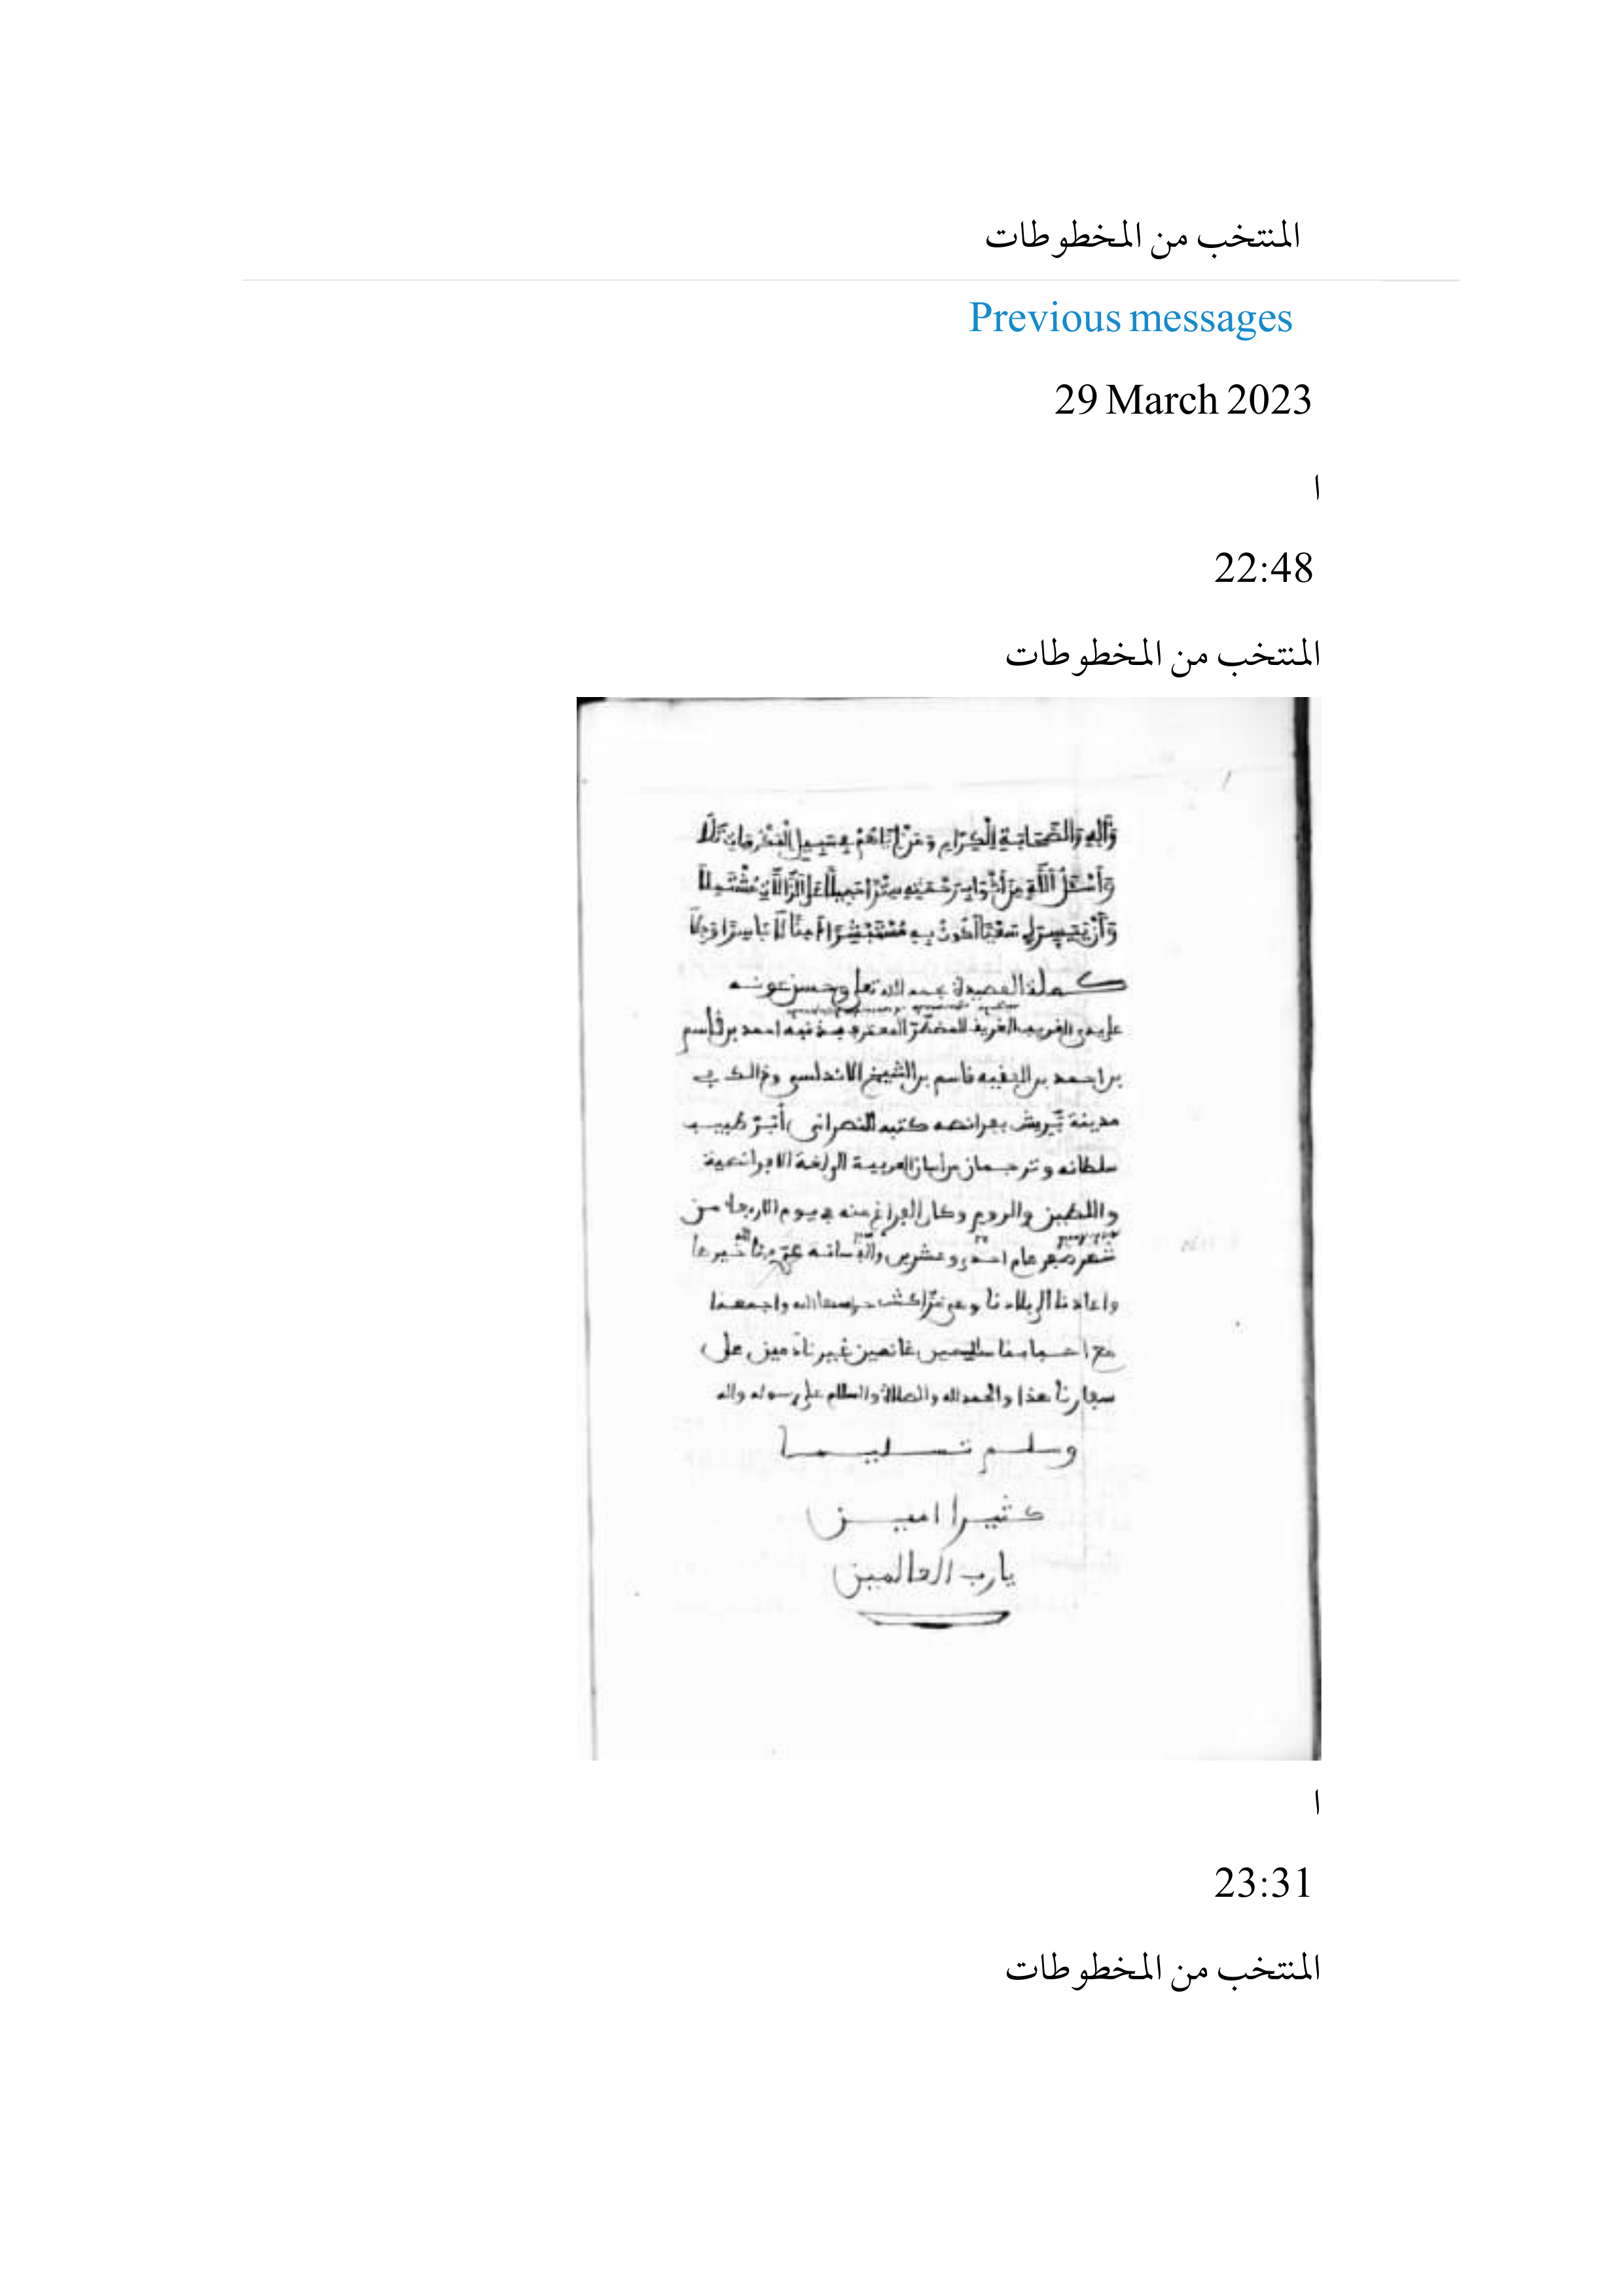 المنتخب من المخطوطات
Previous messages
29 March 2023
ا
22:48
المنتخب من المخطوطات
وَآلِهِ وَالصَّحَابَةِ الْكِرَامِ وَمَنْ سَبِيلِ
وَأَسْئَلُ اللَّهَ مِنْ أَثْوَابِ رَحْمَتِهِ سِتْرًا جَمِيلًا عَلَى الزَّلَّاتِ مُشْتَمِلَا
وَأَنْ يُيَسِّرَ لِي سَعْيًا أَكُونُ بِهِ مُسْتَبْشِرًا آمِنًا لَا بَاسِرًا وَجِلَا
كملة القصيدة بحمد الله تعلى وحسن عونه
على يدي الغريب الغريق المضطر المعترف بذنبه احمد بن قاسم
بن احمد بن الفقيه قاسم بن الشيخ الاندلسي وذالك في
مدينة بريش بفرانصه كتبه للنصراني أبرت طبيب
سلطانه وترجمان من لسان العربية الى لغة الافرانصية
واللطين والروم وكان الفراغ منه في يوم الاربعاء من
شهر صفر عام احدى وعشرين وألف سانة عرفنا الله خيرها
واعادنا الى بلادنا وهي مراكش حرسها الله واجمعنا
مع احبابنا سالمين غانمين غير نادمين على
سفارنا هذا والحمد لله والصلاة والسلام على رسوله واله
وسلم تسليما
كثيرا امين
يا رب العالمين
ا
23:31
المنتخب من المخطوطات